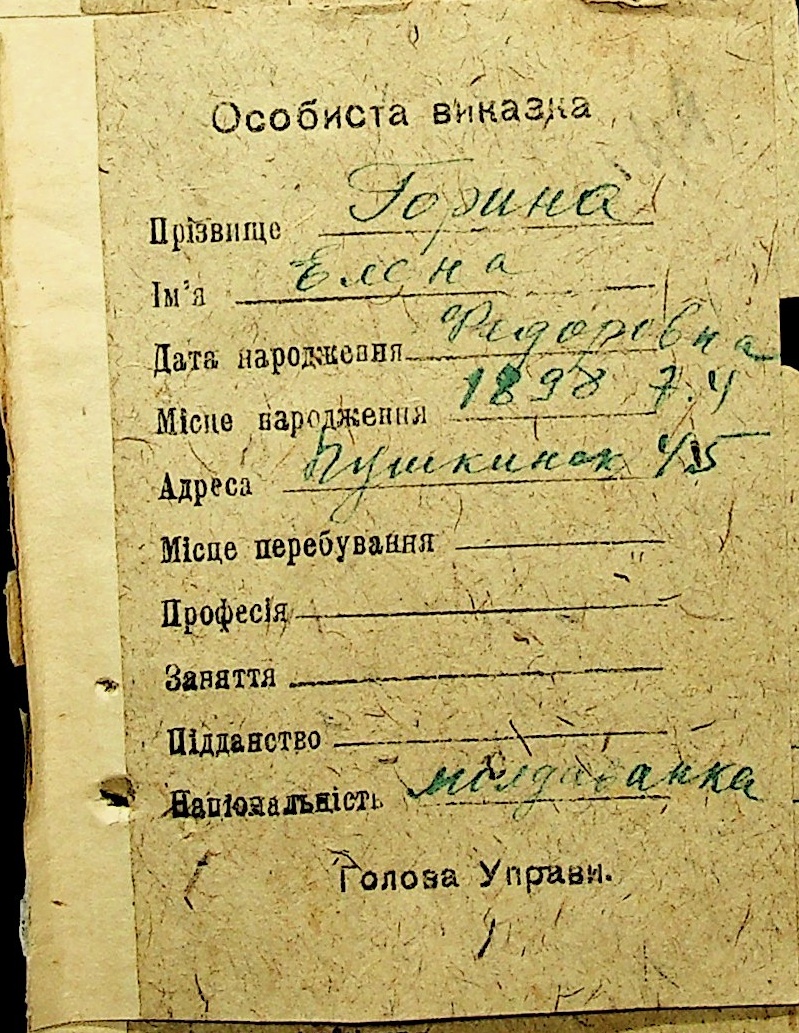 Особиста виказка
Прізвище Горина
Ім'я Елена
Дата народження Федоровна
Місце народження 1898 7.4
Адреса Пушкинск 45
Місце перебування
Професія
Заняття
Підданство
Національність молдаванка
Голова Управи.